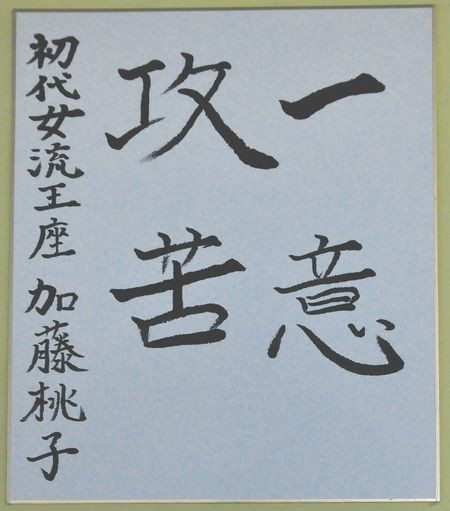 一意
攻苦
初代女流王座 加藤桃子